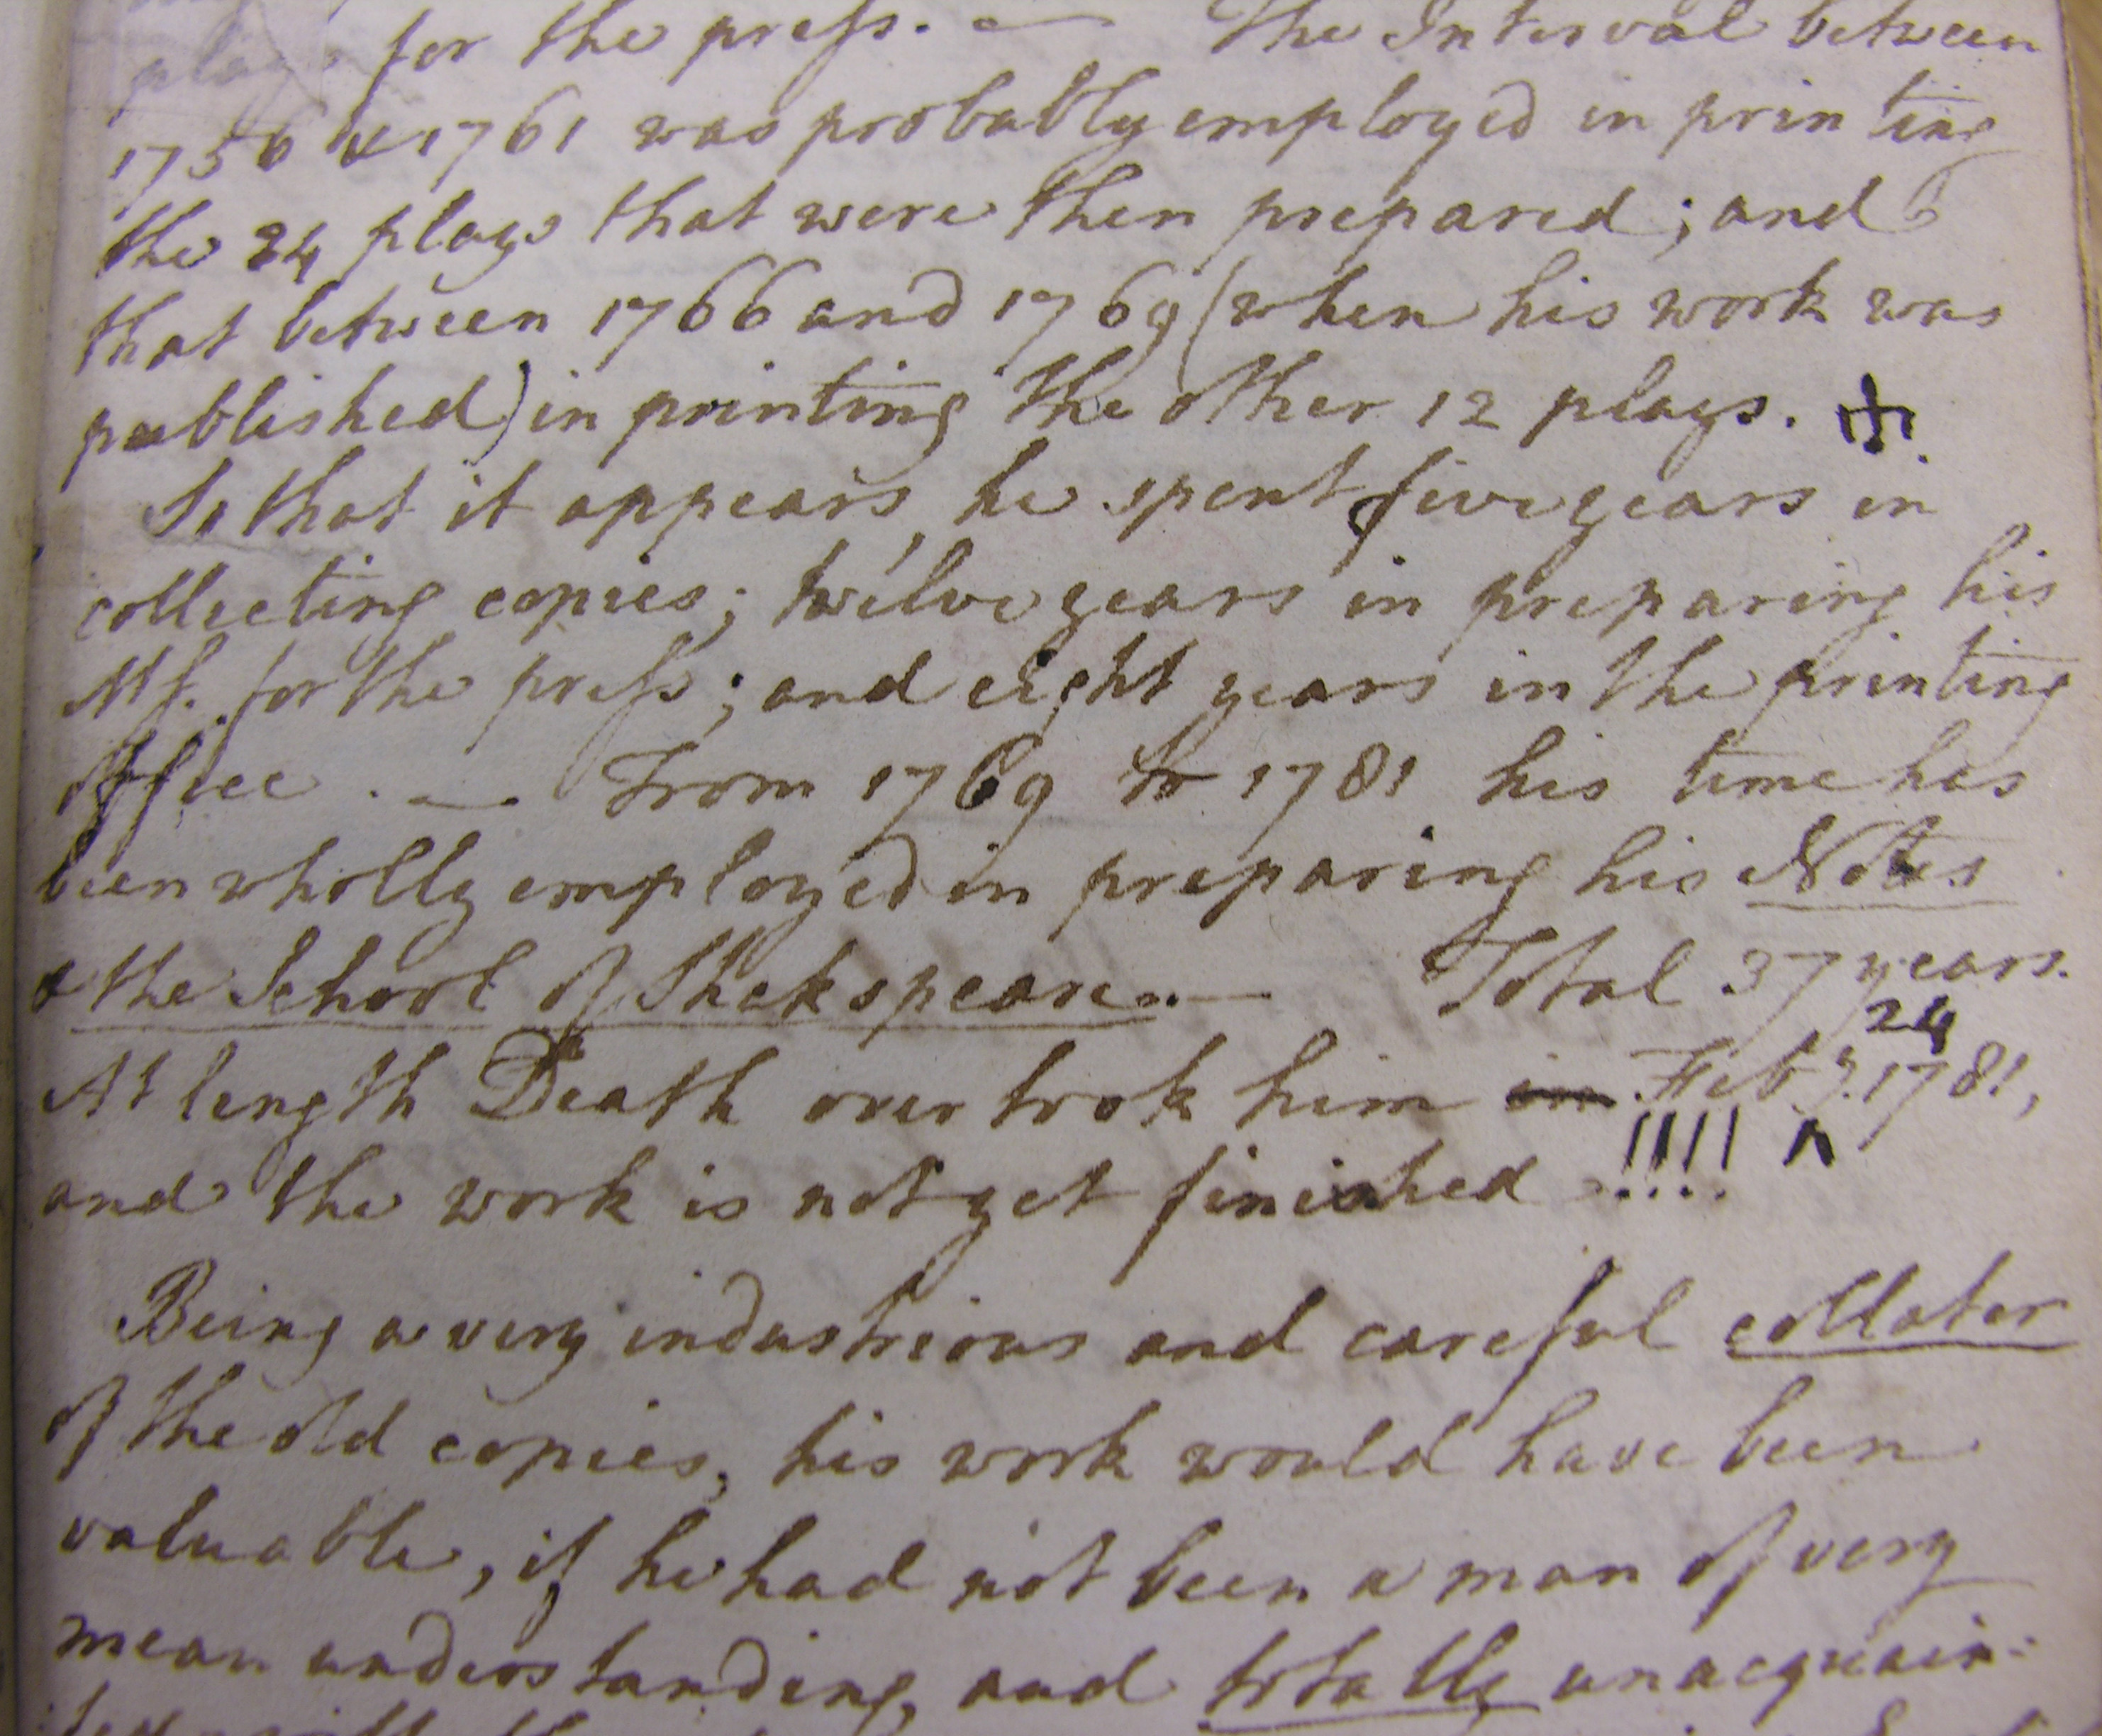 plays for the press. — The Interval between
1756 & 1761 was probably employed in printing
the 24 plays that were then prepared; and
that between 1766 and 1769 (when his work was
published) in printing the other 12 plays.
So that it appears, he spent five years in
collecting copies; twelve years in preparing his
Ms. for the press; and eight years in the printing
office. — From 1769 to 1781 his time has
been wholly employed in preparing his Notes
& the School of Shakspeare. — Total 37 years.
24
At length Death overtook him in Feby. 1781,
and the work is not yet finished !!!! ^
Being a very industrious and careful collater
of the old copies, his work would have been
valuable, if he had not been a man of very
mean understanding, and totally unacquain-